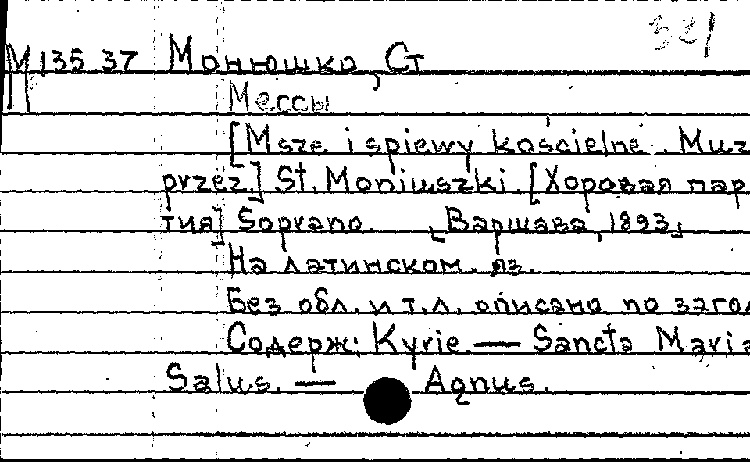 321
М 135 37 Монюшко, Ст
Мессы
[Msze i spiewy kościelne. Muz
przez] St. Moniuszki. [Хоровая пар
тия] Soprano. [Варшава, 1893]
На латинском. яз.
Без обл. и т.л. описано по загол
Содерж: Kyrie. — Sancta Maria
Salus. — Agnus.